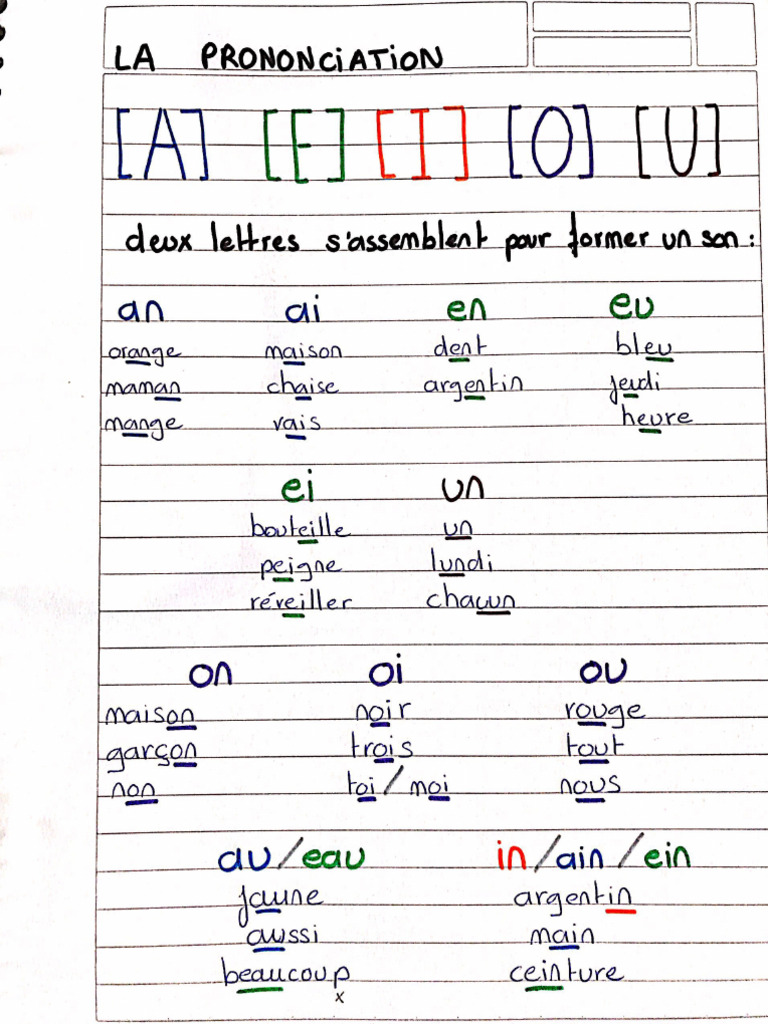 LA PRONONCiATiON
[A] [E] [I] [O] [U]
deux lettres s'assemblent pour former un son :
an ai en eu
orange maison dent bleu
maman chaise argentin jeudi
mange vais heure
ei un
bouteille un
peigne lundi
réveiller chacun
on oi ou
maison noir rouge
garçon trois tout
non toi/moi nous
au/eau in/ain/ein
jaune argentin
aussi main
beaucoup ceinture
x